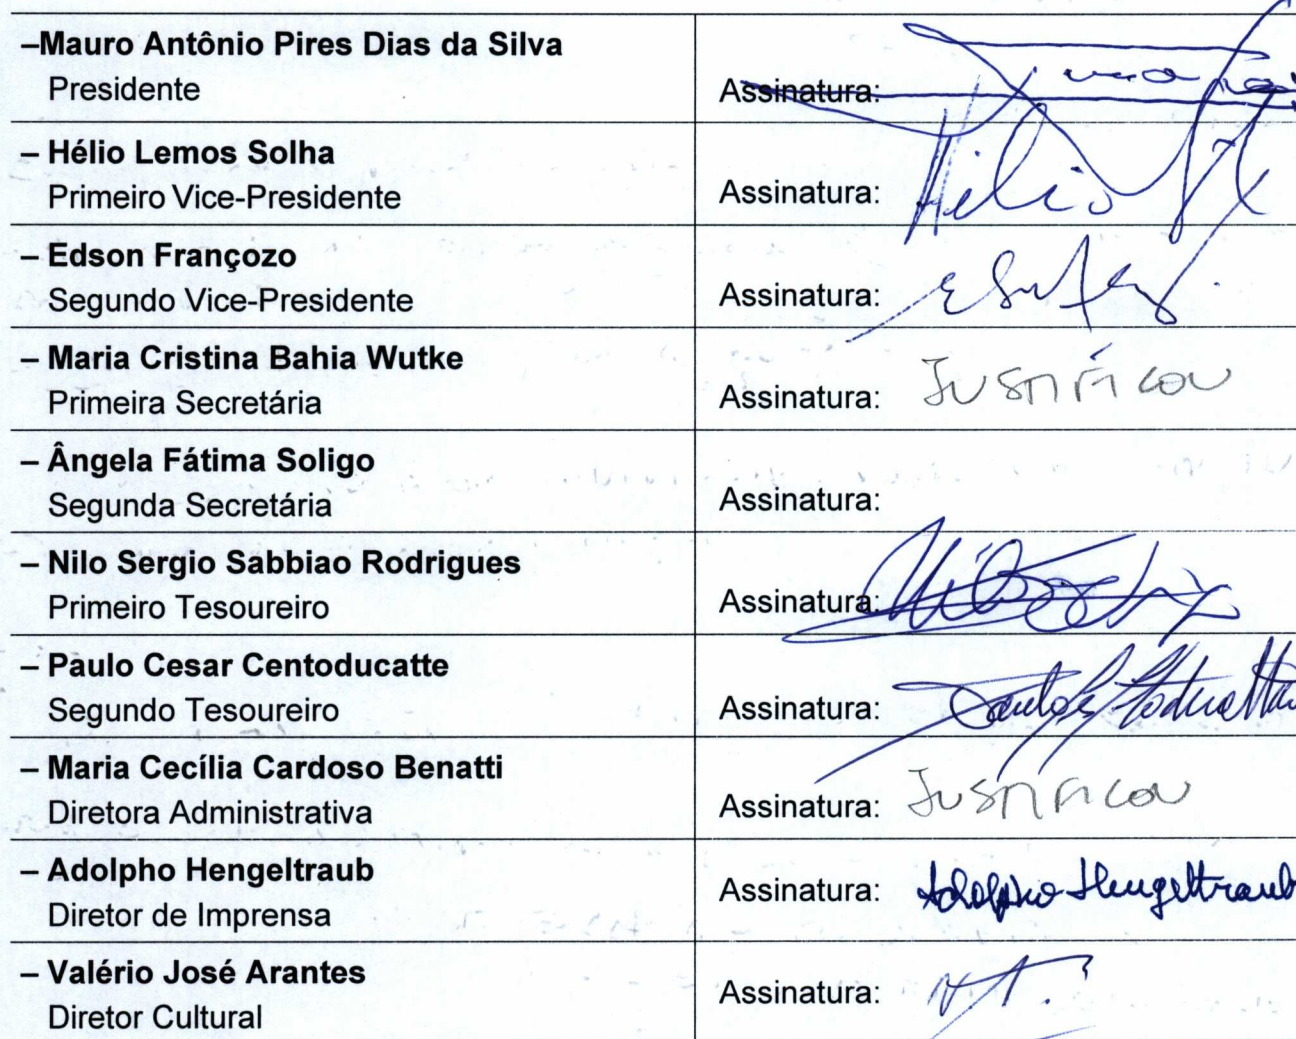 –Mauro Antônio Pires Dias da Silva
Presidente
Assinatura:
– Hélio Lemos Solha
Primeiro Vice-Presidente
Assinatura: Hélio
– Edson Françozo
Segundo Vice-Presidente
Assinatura:
– Maria Cristina Bahia Wutke
Primeira Secretária
Assinatura: JUSTIFICOU
– Ângela Fátima Soligo
Segunda Secretária
Assinatura:
– Nilo Sergio Sabbiao Rodrigues
Primeiro Tesoureiro
Assinatura:
– Paulo Cesar Centoducatte
Segundo Tesoureiro
Assinatura:
– Maria Cecília Cardoso Benatti
Diretora Administrativa
Assinatura: JUSTIFICOU
– Adolpho Hengeltraub
Diretor de Imprensa
Assinatura: Adolpho Hengeltraub
– Valério José Arantes
Diretor Cultural
Assinatura: